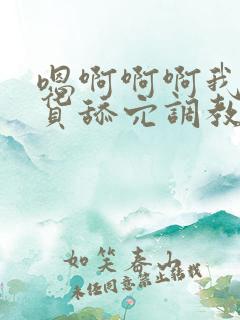 嗯啊啊啊我
舔穴調教
如笑春山
未经同意禁止转载